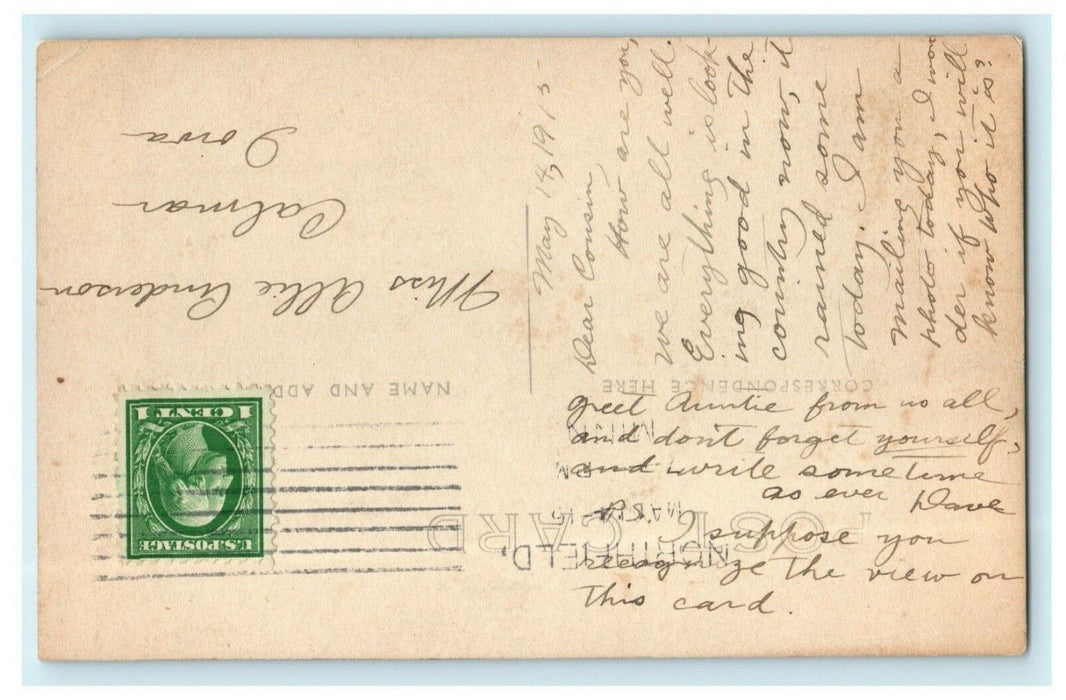 POST CARD
CORRESPONDENCE HERE
NAME AND ADD
U.S. POSTAGE
1 CENT 1
NORTHFIELD,
MAY
Miss Allie Anderson
Calmar
Iowa
May 14, 1915
Dear Cousin,
How are you,
we are all well.
Everything is look-
ing good in the
country now, it
rained some
today. I am
mailing you a
photo today, I won
der if you will
know who it is?
Greet Auntie from us all,
and don't forget yourself,
and write sometime
as ever Dave
P.S. I suppose you
recognize the view on
this card.